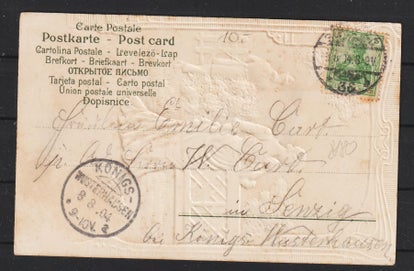 Carte Postale
Postkarte - Post card
Cartolina Postale - Levelező-Lap
Brefkort - Briefkaart - Brevkort
ОТКРЫТОЕ ПИСЬМО
Tarjeta postal - Carto postal
Union postale universelle
Dopisnice
10.-
Fräulein Caroline Cart
W. Cart
in Senzig
bei Königs Wusterhausen
KÖNIGS-
WUSTERHAUSEN
9 8 04
9-10V.